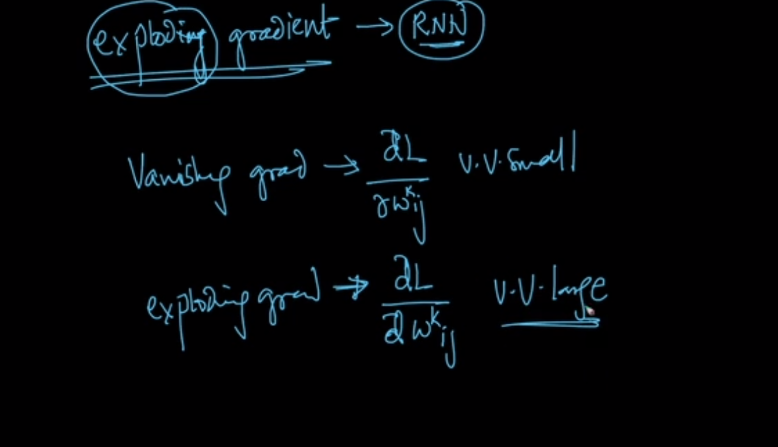 exploding gradient → RNN
Vanishing grad → ∂L/∂w^k_ij v.v.small
exploding grad → ∂L/∂w^k_ij v.v.large